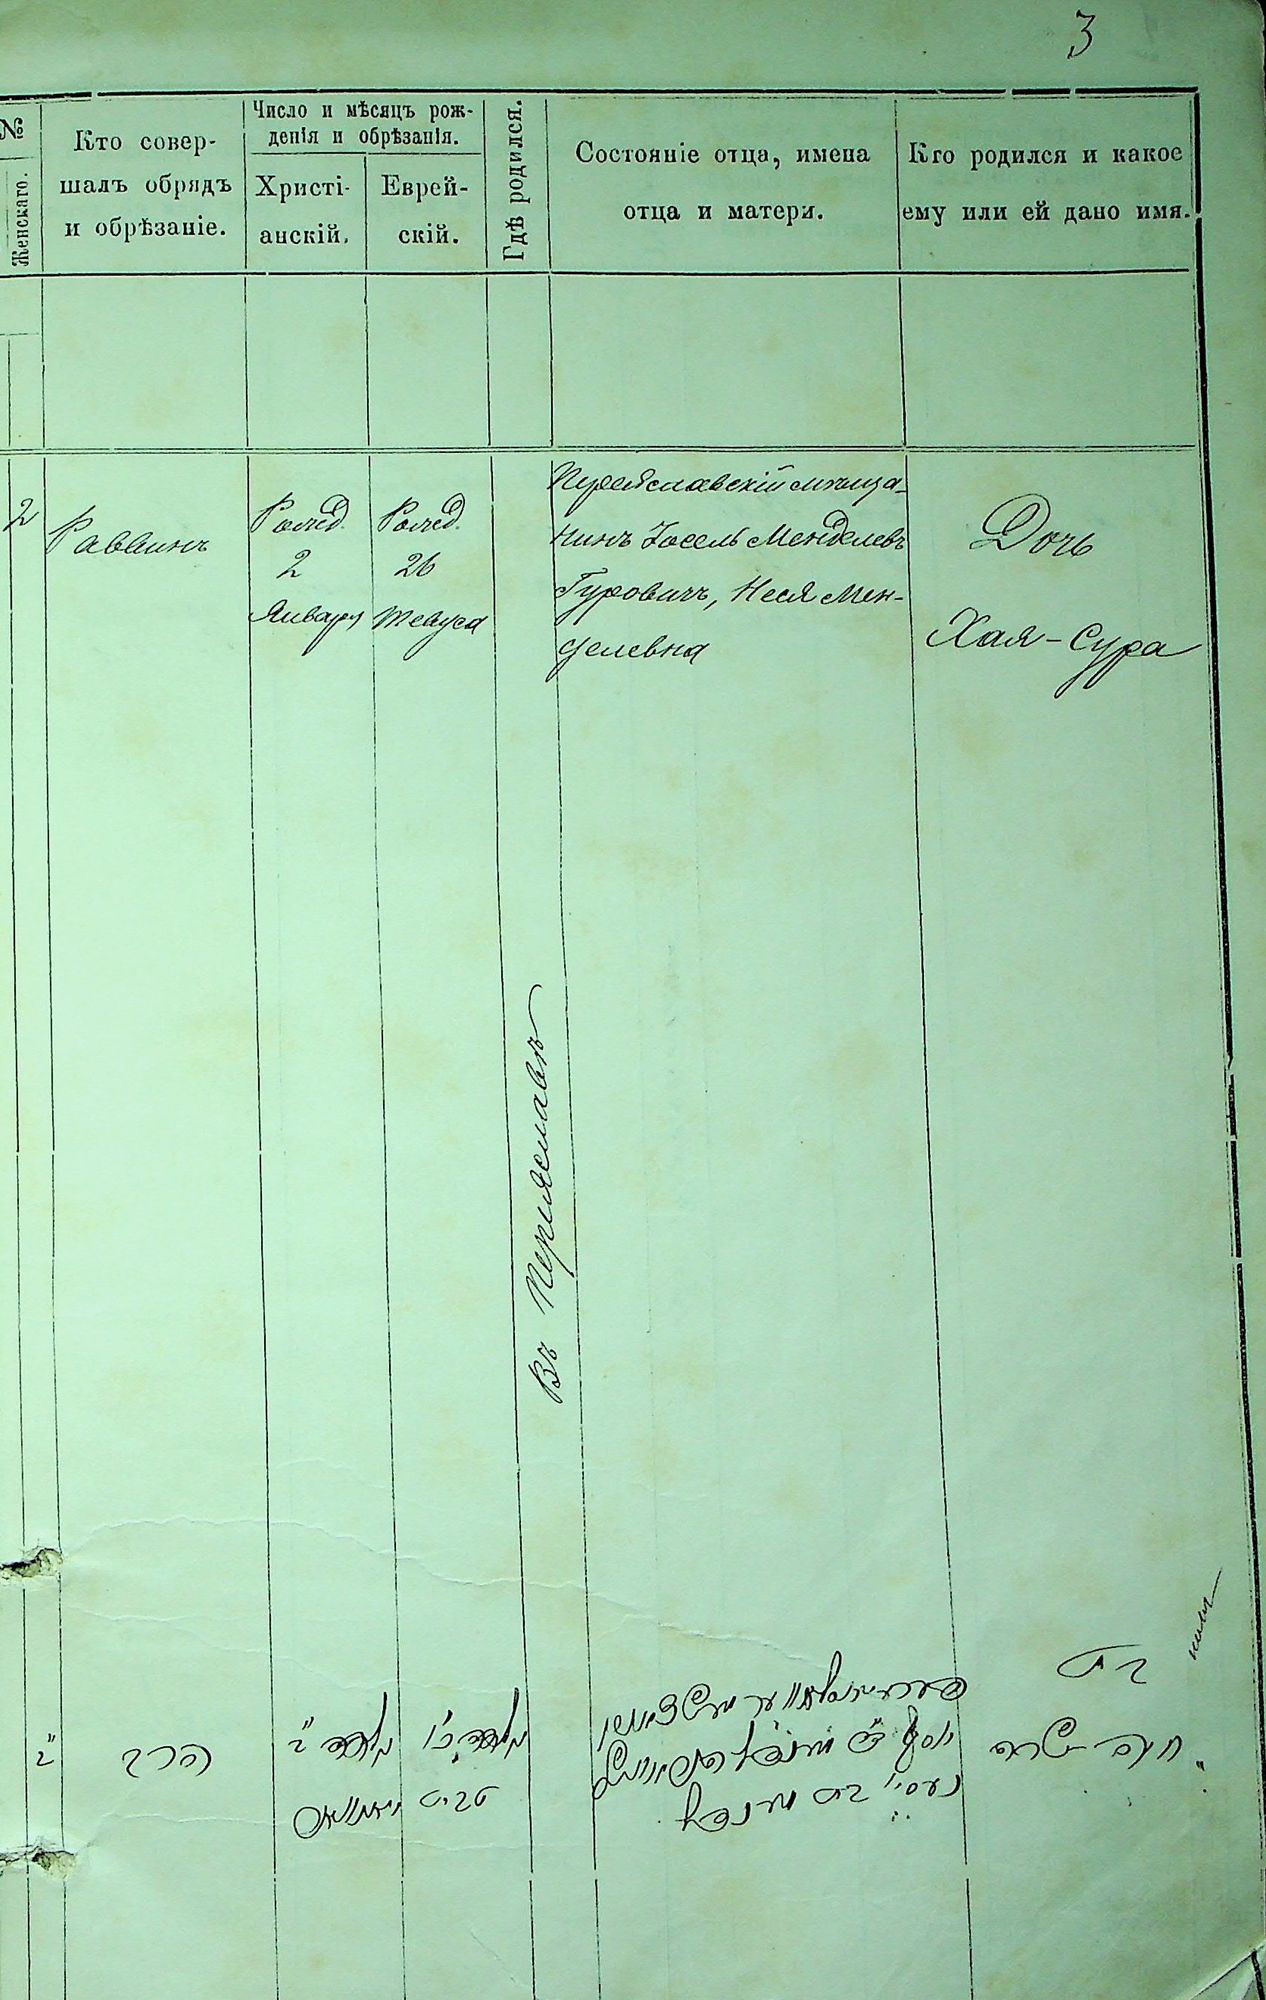 3
№
Женскаго.
Кто совер-
шалъ обрядъ
и обрѣзаніе.
Число и мѣсяцъ рож-
денія и обрѣзанія.
Христі-
анскій.
Еврей-
скій.
Гдѣ родился.
Состояніе отца, имена
отца и матери.
Кто родился и какое
ему или ей дано имя.
2
Раввинъ
Рожд.
2
Января
Рожд.
26
Тевуса
Въ Переяславѣ
Переяславскій мѣща-
нинъ Іосель Менделевъ
Гуровичъ, Неся Мен-
делевна
Дочь
Хая-Сура
בת
חיה שרה
יוסף
בת מענדל
טבת
הרב